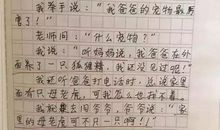 我举手说：“我爸爸的宠物最厉
害了！”
老师问：“什么宠物？”
我说：“听妈妈说，我爸爸在外
面养了一只狐狸精，我还没见过呢！”
我还听爸爸打电话时，总说家里
面有只母老虎，可我怎么也找不着。
我就跑去问爷爷，爷爷说：“家
里的母老虎可不只一只啊！”